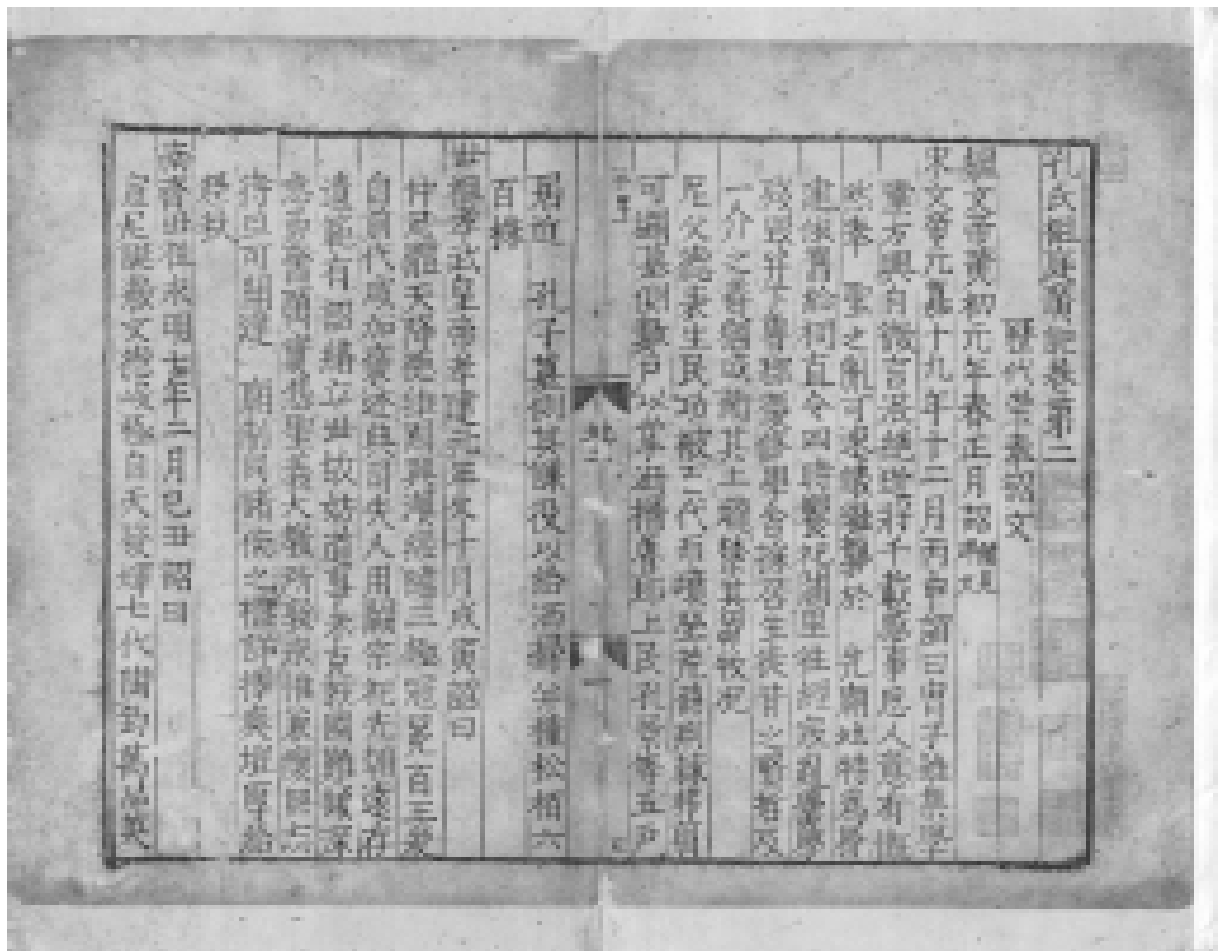 孔氏祖庭廣記卷第二
歷代崇奉詔文
魏文帝黃初元年春正月詔
宋文帝元嘉十九年十二月丙申詔曰胄子始集學
業方興自微言泯絕逝將千載感事思人意有慨
然奉 聖之胤可速議繼襲於 先廟地特為營
建依舊給祠直令四時饗祀闕里往經寇亂黌學
殘毀并下魯郡修學舍採召生徒昔之賢哲及
一介之善猶或衛其土壟禁其芻牧況
尼父德表生民功被百代而墳塋荒蕪荊棘弗翦
可蠲墓側數戶以掌洒掃魯郡上民孔景等五戶
居近 孔子墓側其課役以給洒掃并種松柏六
百株
世祖孝武皇帝孝建元年冬十月戊寅詔曰
仲尼體天降德維周興漢經緯三極冠冕百王爰
自前代咸加褒述典司失人用闕宗祀先朝遠存
遺範有詔繕立世故妨道事未克就國難頻深
忠勇奮厲實憑聖義大教所敦永惟兼懷無忘
待旦可開建 廟制同諸侯之禮詳擇爽塏厚給
祭秩
南齊世祖永明七年二月己丑詔曰
宣尼誕敷文德峻極自天發輝七代陶鈞萬品英
卷二
一